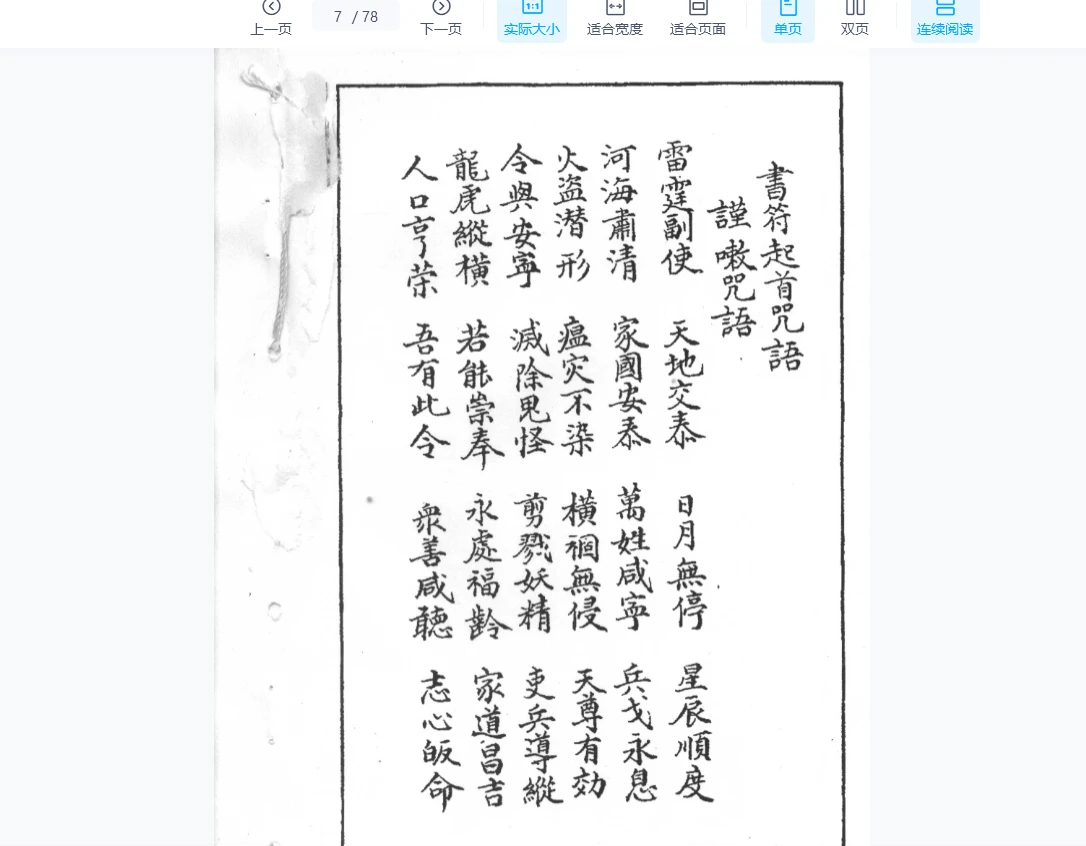 上一页
7 / 78
下一页
1:1
实际大小
适合宽度
适合页面
单页
双页
连续阅读
書符起首咒語
謹噀咒語
雷霆副使 天地交泰 日月無停 星辰順度
河海肅清 家國安泰 萬姓咸寧 兵戈永息
火盜潜形 瘟灾不染 橫禍無侵 天尊有効
令與安寧 滅除鬼怪 剪戮妖精 吏兵導縱
龍虎縱橫 若能崇奉 永處福齡 家道昌吉
人口亨荣 吾有此令 衆善咸聽 志心皈命